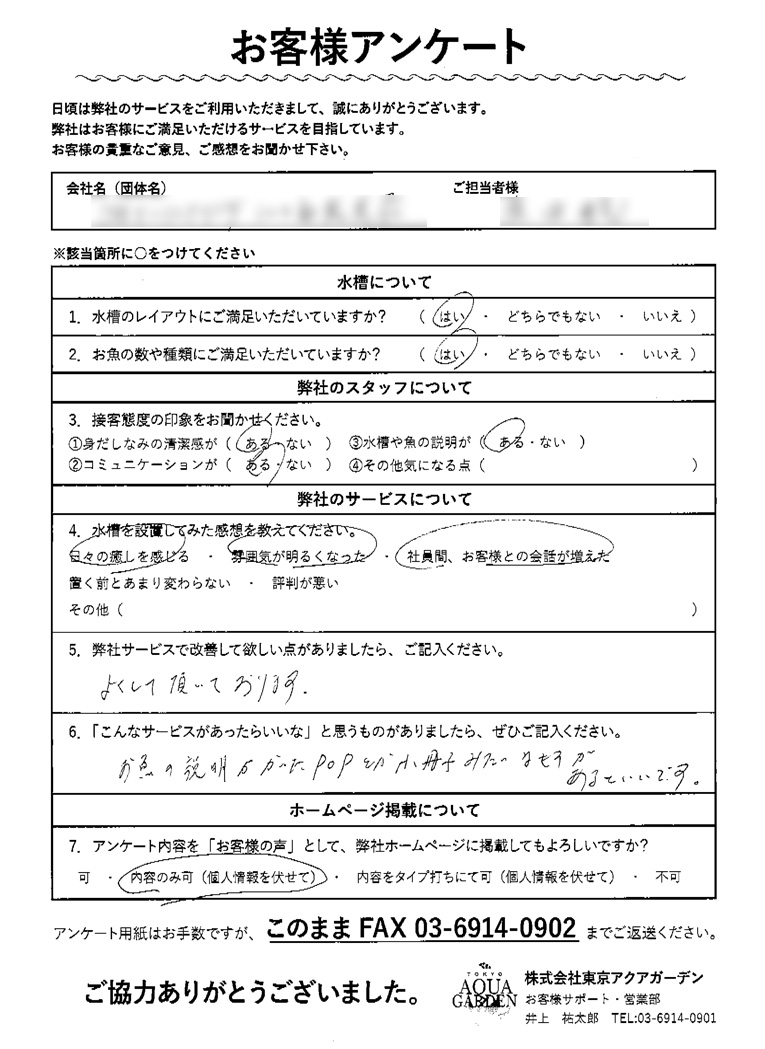 お客様アンケート
日頃は弊社のサービスをご利用いただきまして、誠にありがとうございます。
弊社はお客様にご満足いただけるサービスを目指しています。
お客様の貴重なご意見、ご感想をお聞かせ下さい。
会社名（団体名） ご担当者様
※該当箇所に○をつけてください
水槽について
1. 水槽のレイアウトにご満足いただいていますか？ （ はい ・ どちらでもない ・ いいえ ）
2. お魚の数や種類にご満足いただいていますか？ （ はい ・ どちらでもない ・ いいえ ）
弊社のスタッフについて
3. 接客態度の印象をお聞かせください。
①身だしなみの清潔感が（ ある・ない ） ③水槽や魚の説明が（ ある・ない ）
②コミュニケーションが（ ある・ない ） ④その他気になる点（ ）
弊社のサービスについて
4. 水槽を設置してみた感想を教えてください。
日々の癒しを感じる ・ 雰囲気が明るくなった ・ 社員間、お客様との会話が増えた
置く前とあまり変わらない ・ 評判が悪い
その他（ ）
5. 弊社サービスで改善して欲しい点がありましたら、ご記入ください。
よくして頂いております。
6. 「こんなサービスがあったらいいな」と思うものがありましたら、ぜひご記入ください。
お魚の説明がかいたPOPとか小冊子みたいなモノが
あるといいです。
ホームページ掲載について
7. アンケート内容を「お客様の声」として、弊社ホームページに掲載してもよろしいですか？
可 ・ 内容のみ可（個人情報を伏せて） ・ 内容をタイプ打ちにて可（個人情報を伏せて） ・ 不可
アンケート用紙はお手数ですが、このまま FAX 03-6914-0902 までご返送ください。
ご協力ありがとうございました。
TOKYO
AQUA
GARDEN
株式会社東京アクアガーデン
お客様サポート・営業部
井上 祐太郎 TEL:03-6914-0901